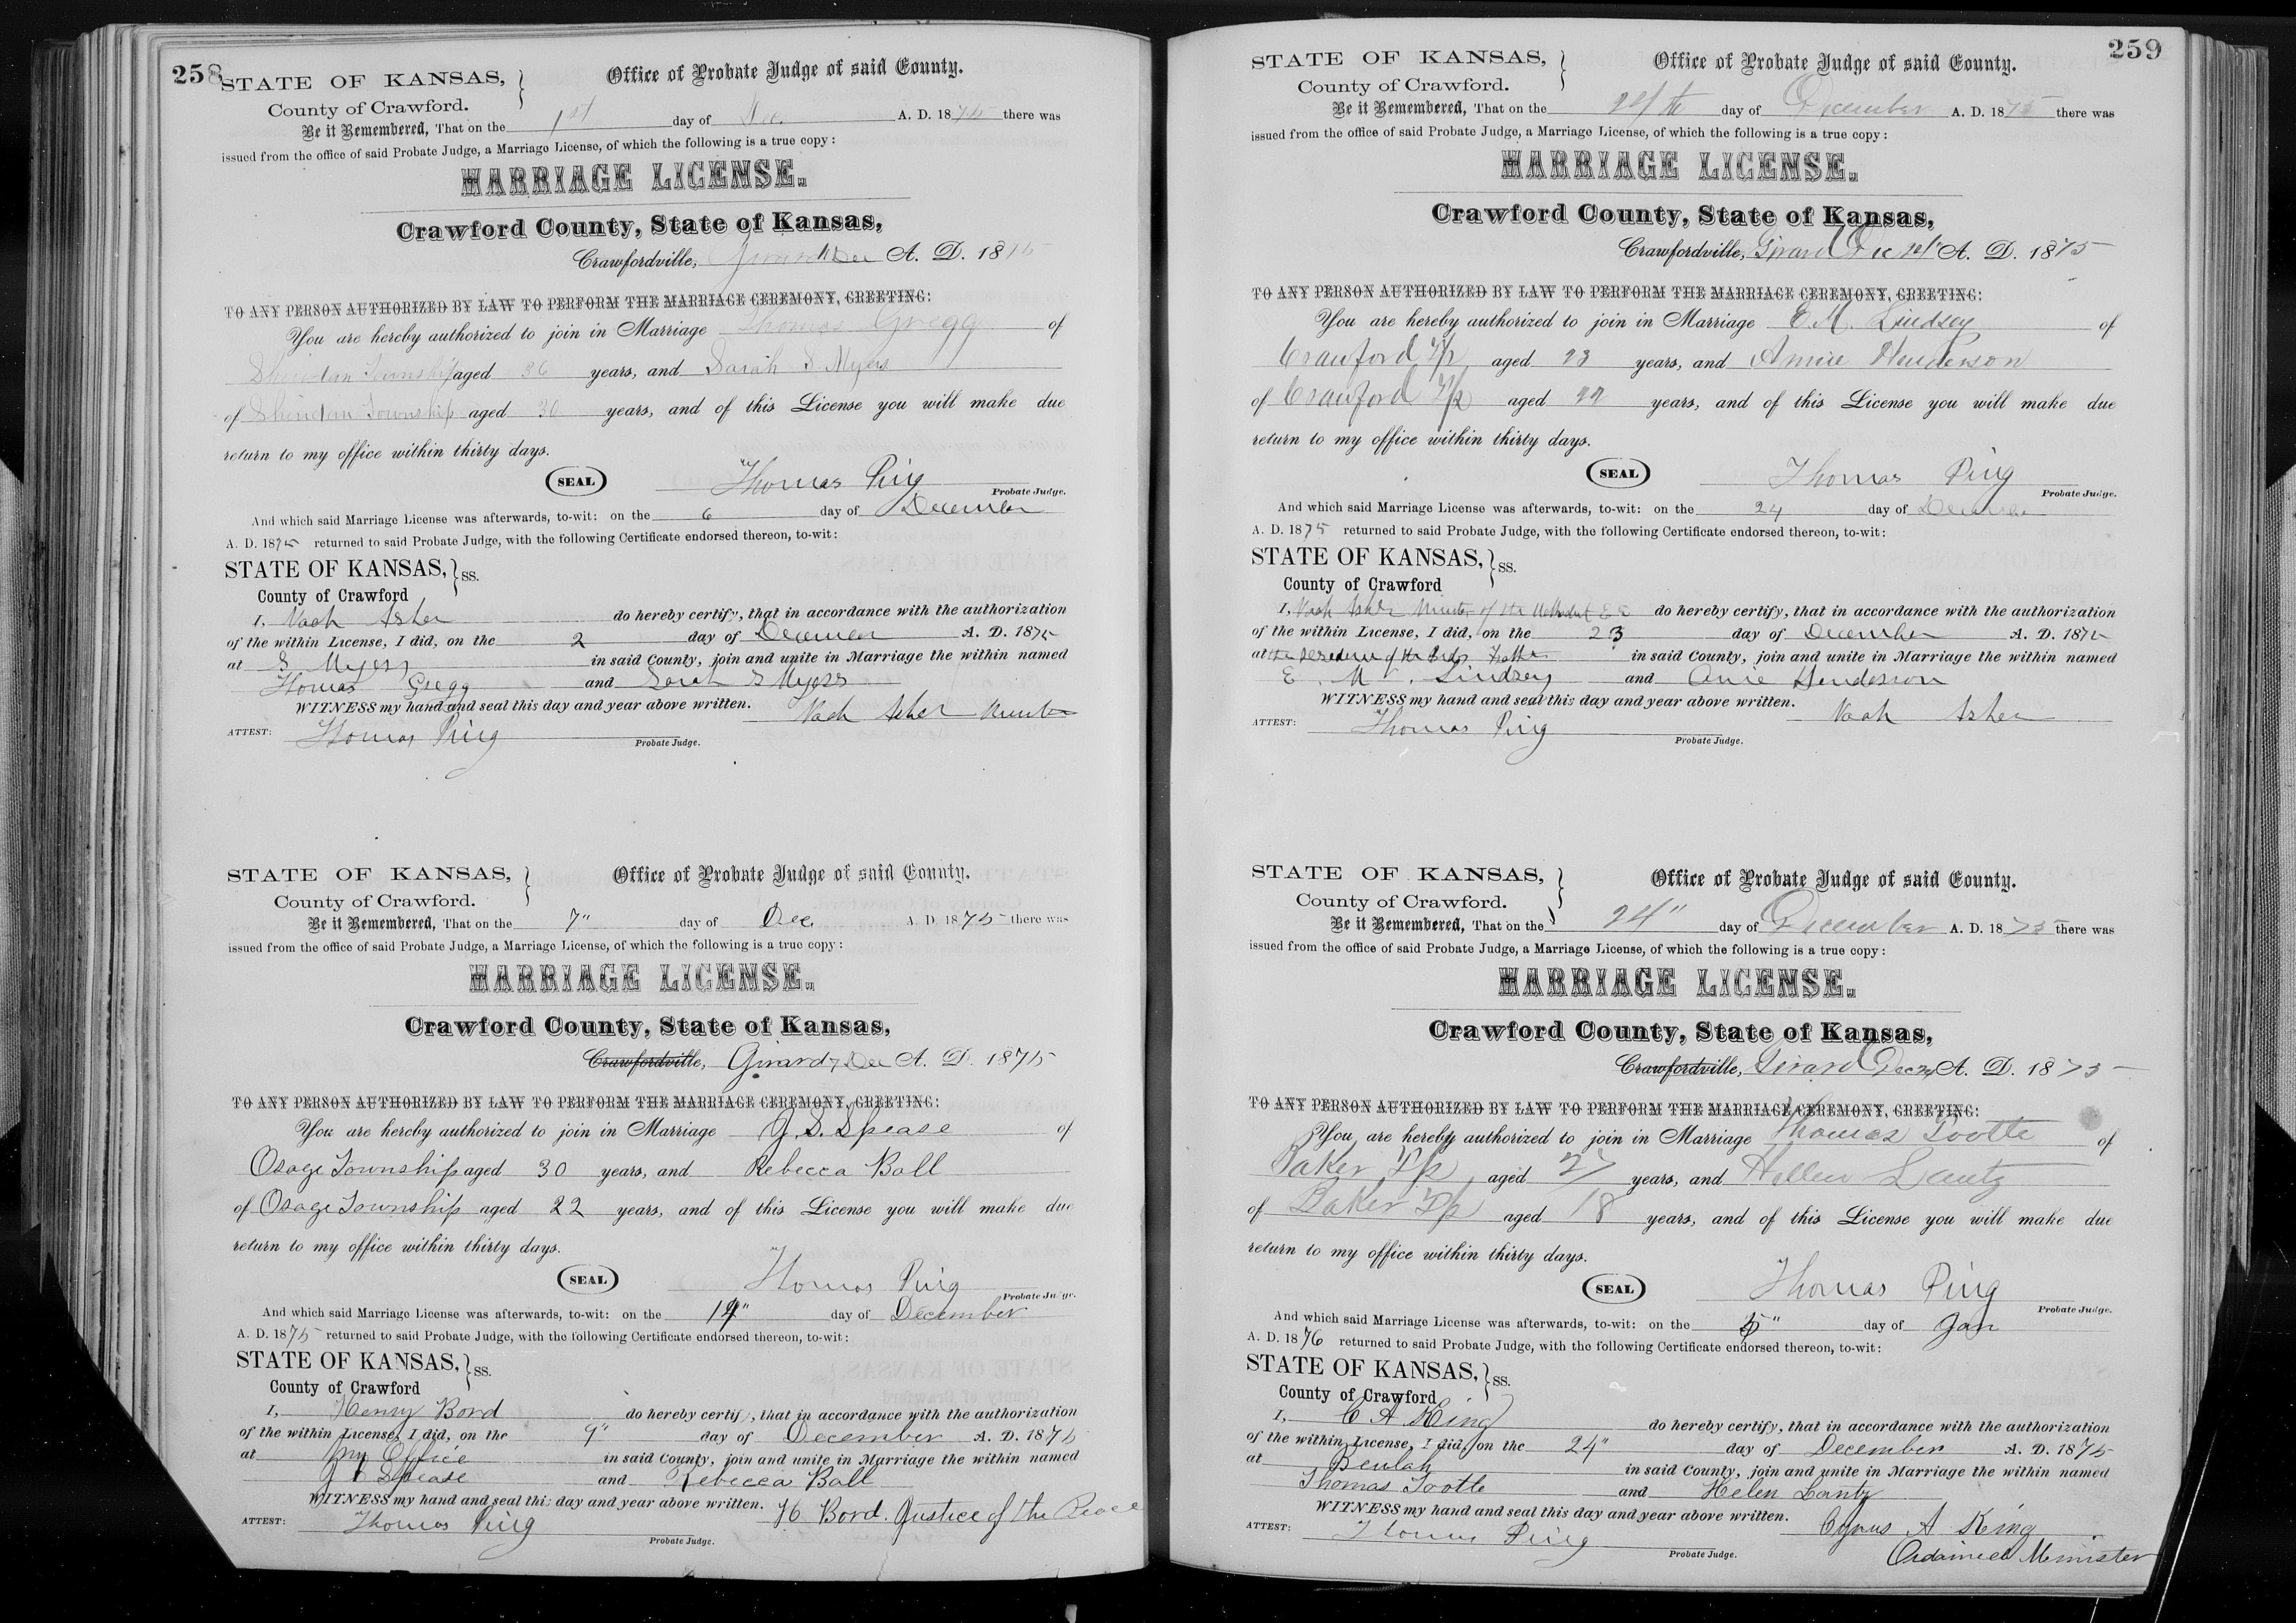 258
STATE OF KANSAS, Office of Probate Judge of said County.
County of Crawford.
Be it Remembered, That on the 1st day of Dec. A. D. 1875 there was
issued from the office of said Probate Judge, a Marriage License, of which the following is a true copy:
MARRIAGE LICENSE.
Crawford County, State of Kansas,
Crawfordville, Girard 1 Dec A. D. 1875
TO ANY PERSON AUTHORIZED BY LAW TO PERFORM THE MARRIAGE CEREMONY, GREETING:
You are hereby authorized to join in Marriage Thomas Gregg of
Sheridan Township aged 36 years, and Sarah S Myers
of Sheridan Township aged 30 years, and of this License you will make due
return to my office within thirty days.
SEAL Thomas Ping
Probate Judge.
And which said Marriage License was afterwards, to-wit: on the 6 day of December
A. D. 1875 returned to said Probate Judge, with the following Certificate endorsed thereon, to-wit:
STATE OF KANSAS, SS.
County of Crawford
I, Noah Asher do hereby certify, that in accordance with the authorization
of the within License, I did, on the 2 day of December A. D. 1875
at S Myers in said County, join and unite in Marriage the within named
Thomas Gregg and Sarah S Myers
WITNESS my hand and seal this day and year above written. Noah Asher Minister
ATTEST: Thomas Ping
Probate Judge.
STATE OF KANSAS, Office of Probate Judge of said County.
County of Crawford.
Be it Remembered, That on the 7" day of Dec. A. D. 1875 there was
issued from the office of said Probate Judge, a Marriage License, of which the following is a true copy:
MARRIAGE LICENSE.
Crawford County, State of Kansas,
Crawfordville, Girard 7 Dec A. D. 1875
TO ANY PERSON AUTHORIZED BY LAW TO PERFORM THE MARRIAGE CEREMONY, GREETING:
You are hereby authorized to join in Marriage J. S. Spease of
Osage Township aged 30 years, and Rebecca Ball
of Osage Township aged 22 years, and of this License you will make due
return to my office within thirty days.
SEAL Thomas Ping
Probate Judge.
And which said Marriage License was afterwards, to-wit: on the day of December
A. D. 1875 returned to said Probate Judge, with the following Certificate endorsed thereon, to-wit:
STATE OF KANSAS, SS.
County of Crawford
I, Henry Bord do hereby certify, that in accordance with the authorization
of the within License, I did, on the 9" day of December A. D. 1875
at my Office in said County, join and unite in Marriage the within named
J S Spease and Rebecca Ball
WITNESS my hand and seal this day and year above written. H Bord. Justice of the Peace
ATTEST: Thomas Ping
Probate Judge.
259
STATE OF KANSAS, Office of Probate Judge of said County.
County of Crawford.
Be it Remembered, That on the day of December A. D. 1875 there was
issued from the office of said Probate Judge, a Marriage License, of which the following is a true copy:
MARRIAGE LICENSE.
Crawford County, State of Kansas,
Crawfordville, Girard Dec A. D. 1875
TO ANY PERSON AUTHORIZED BY LAW TO PERFORM THE MARRIAGE CEREMONY, GREETING:
You are hereby authorized to join in Marriage E. M. Lindsey of
Crawford T/p aged 23 years, and Annie Henderson
of Crawford T/p aged 22 years, and of this License you will make due
return to my office within thirty days.
SEAL Thomas Ping
Probate Judge.
And which said Marriage License was afterwards, to-wit: on the 24 day of December
A. D. 1875 returned to said Probate Judge, with the following Certificate endorsed thereon, to-wit:
STATE OF KANSAS, SS.
County of Crawford
I, Noah Asher Minister of the Methodist E C do hereby certify, that in accordance with the authorization
of the within License, I did, on the 23 day of December A. D. 1875
at the residence of the brides Father in said County, join and unite in Marriage the within named
E. M. Lindsey and Anie Henderson
WITNESS my hand and seal this day and year above written. Noah Asher
ATTEST: Thomas Ping
Probate Judge.
STATE OF KANSAS, Office of Probate Judge of said County.
County of Crawford.
Be it Remembered, That on the 24" day of December A. D. 1875 there was
issued from the office of said Probate Judge, a Marriage License, of which the following is a true copy:
MARRIAGE LICENSE.
Crawford County, State of Kansas,
Crawfordville, Girard Dec 24 A. D. 1875
TO ANY PERSON AUTHORIZED BY LAW TO PERFORM THE MARRIAGE CEREMONY, GREETING:
You are hereby authorized to join in Marriage Thomas Tootle of
Baker T/p aged 27 years, and Hellen Lantz
of Baker T/p aged 18 years, and of this License you will make due
return to my office within thirty days.
SEAL Thomas Ping
Probate Judge.
And which said Marriage License was afterwards, to-wit: on the 5" day of Jan
A. D. 1876 returned to said Probate Judge, with the following Certificate endorsed thereon, to-wit:
STATE OF KANSAS, SS.
County of Crawford
I, C A King do hereby certify, that in accordance with the authorization
of the within License, I did, on the 24" day of December A. D. 1875
at Beulah in said County, join and unite in Marriage the within named
Thomas Tootle and Helen Lantz
WITNESS my hand and seal this day and year above written. Cyrus A King
ATTEST: Thomas Ping Ordained Minister
Probate Judge.